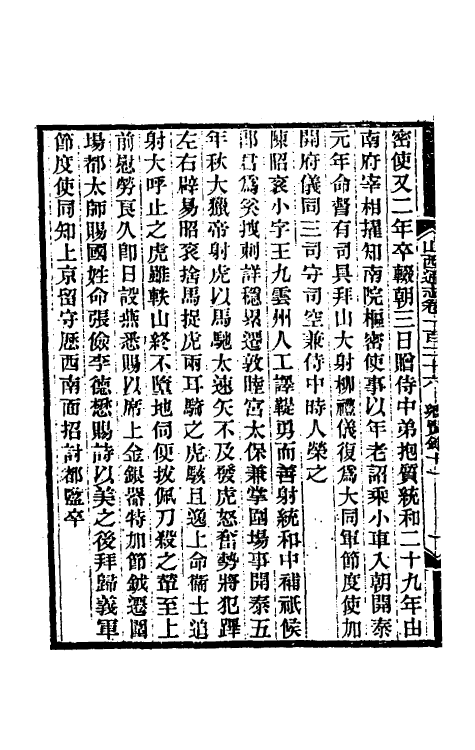 山西通志卷一百三十六 鄉賢錄十一
密使又二年卒輟朝三日贈侍中弟抱質統和二十九年由
南府宰相擢知南院樞密使事以年老詔乘小車入朝開泰
元年命督有司具拜山大射柳禮儀復爲大同軍節度使加
開府儀同三司守司空兼侍中時人榮之
陳昭袞小字王九雲州人工譯鞮勇而善射統和中補祗候
郎君爲奚拽剌詳穩累遷敦睦宮太保兼掌圍場事開泰五
年秋大獵帝射虎以馬馳太速矢不及發虎怒奮勢將犯蹕
左右辟易昭袞捨馬捉虎兩耳騎之虎駭且逸上命衞士追
射大呼止之虎雖軼山終不墮地伺便拔佩刀殺之輦至上
前慰勞良久卽日設燕悉賜以席上金銀器特加節鉞遷圍
場都太師賜國姓命張儉李德懋賜詩以美之後拜歸義軍
節度使同知上京留守歷西南面招討都監卒